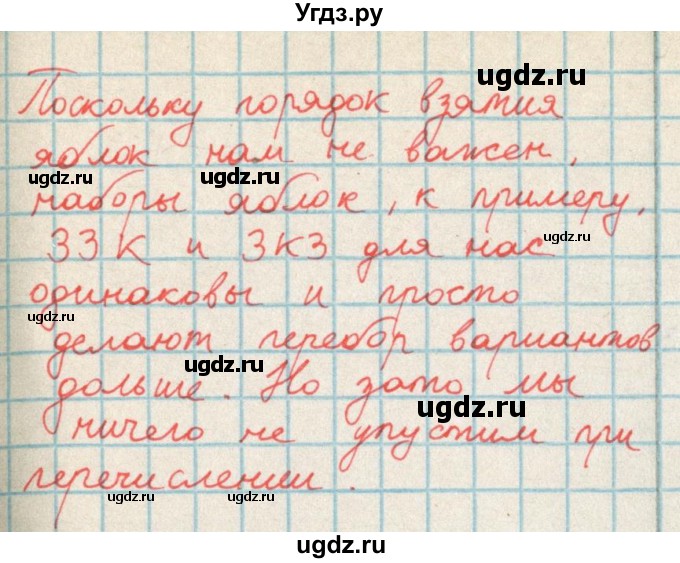 Угдз.ру
Поскольку порядок взятия
ugdz.ru
яблок нам не важен,
ugdz.ru ugdz.ru
наборы яблок, к примеру,
ЗЗК и ЗКЗ для нас
ugdz.ru
одинаковы и просто
ugdz.ru
делают перебор вариантов
ugdz.ru
дольше. Но зато мы
ugdz.ru
ничего не упустим при
перечислении.
ugdz.ru ugdz.ru
ugdz.ru